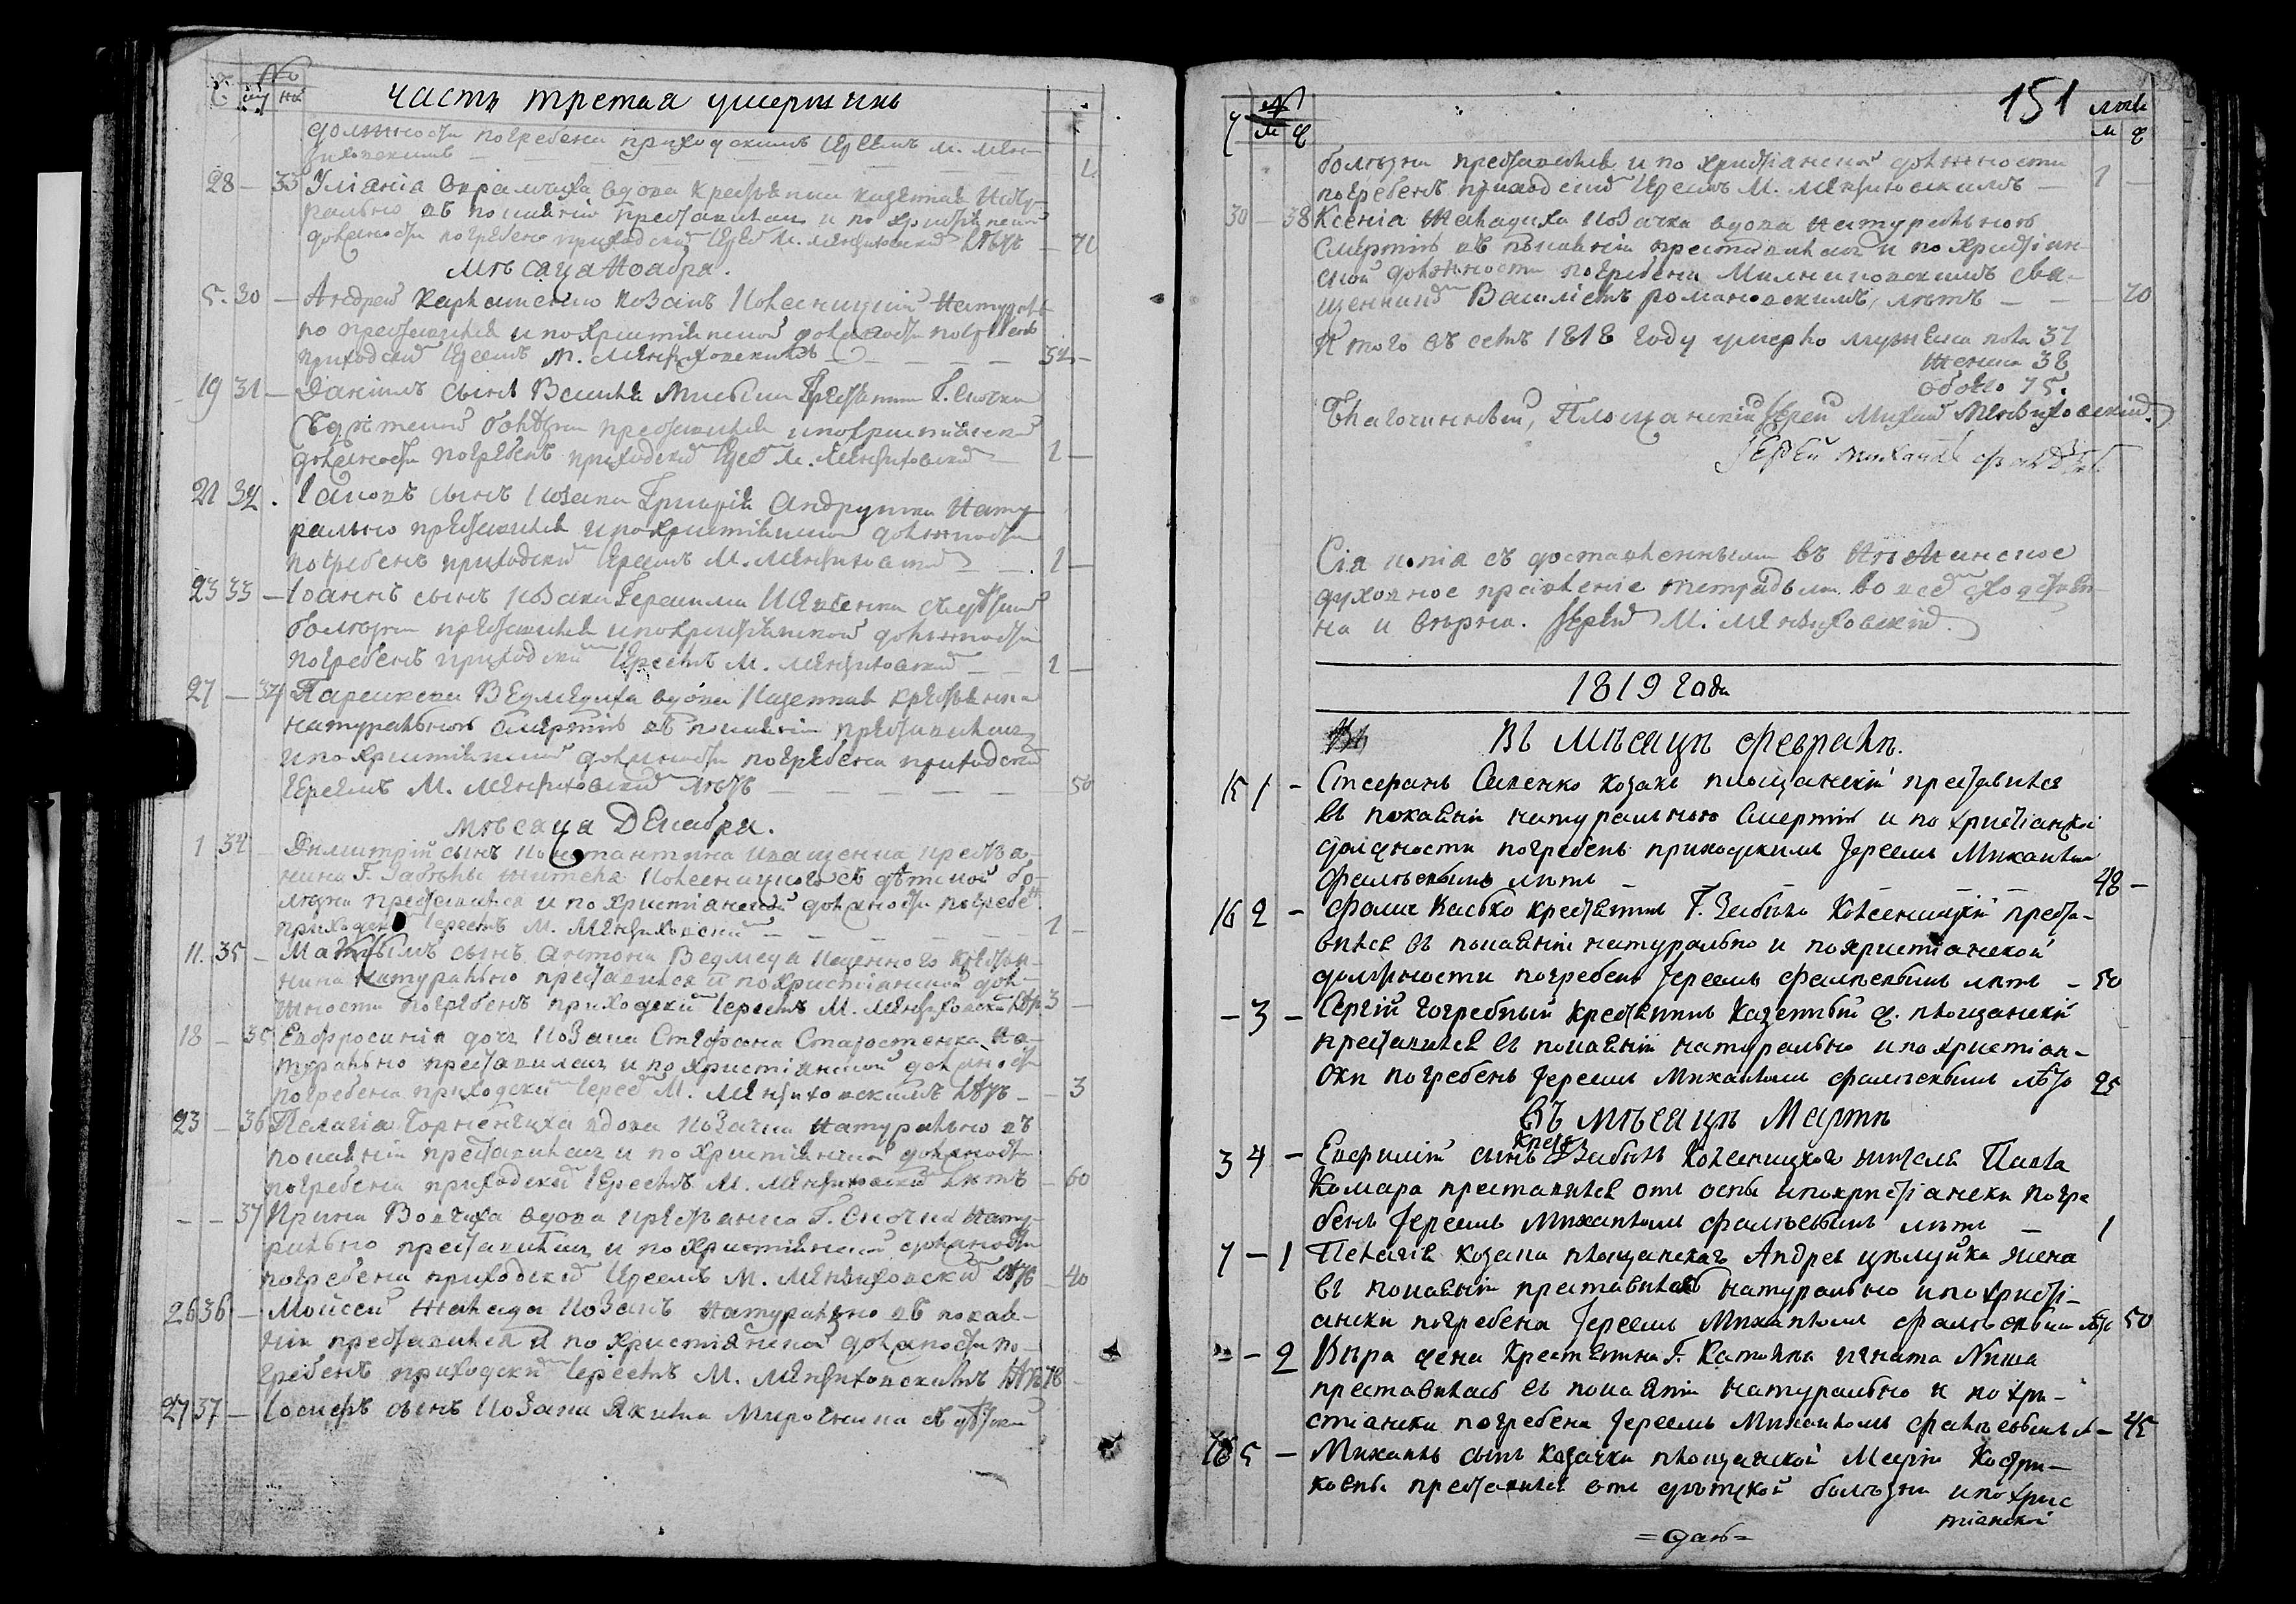 №
му но
часть третая умершихъ
должности погребена приходскимъ Іереемъ М. Мен
жиховскимъ — 1
28 — 33 Уліанія вдова крестьянина казенная нату
рально въ покаяніи преставилась и по христіянской
должности погребена приходским Іерее М. Менжиховским лѣтъ — 70
Мѣсяца Ноября.
5. 30 — Андрей козакъ Колесницкій натураль
но преставился и по христіянской должности погребенъ
приходским Іереемъ М. Менжиховскимъ — 32 —
19 31 — Даніилъ сынъ Василія крестянина Г.
съ дѣтской болѣзни преставился и по христіянской
должности погребенъ приходским Іере М. Менжиховским — 1 —
21 32. Іаковъ сынъ козака Григорія Андрущка нату
рально преставился и по христіянской должности
погребенъ приходским Іереемъ М. Менжиховским — 1 —
23 33 — Іоаннъ сынъ козака Герасима Ильченка съ дѣтской
болѣзни преставился и по христіянской должности
погребенъ приходским Іереемъ М. Менжиховским — 1 —
27 — 34 Параскева Ведмедиха вдова казенная крестьянка
натуральною смертію въ покаяніи преставилась
и по христіянской должности погребена приходским
Іереемъ М. Менжиховским лѣтъ — 50
Мѣсяца Декабря.
1 34 — Димитрій сынъ Константина Иващенка крестья
нина Г. Забѣлы жителя Колесницкого съ дѣтской бо
лѣзни преставился и по христіанской должности погребен
приходским Іереемъ М. Менжиховским — 1 —
11. 35 — сынъ Антона Ведмедя казенного крестья
нина натурально преставился и по христіянской дол
жности погребенъ приходским Іереемъ М. Менжиховским лѣт 3 —
18 — 35 Евфросинія дочь козака Стефана Старостенка на
турально преставилась и по христіянской должности
погребена приходским Іерее М. Менжиховскимъ лѣтъ — 3
23 — 36 Пелагія вдова козачка натурально въ
покаяніи преставилась и по христіянской должности
погребена приходской Іереемъ М. Менжиховским лѣтъ — 60
— — 37 Ирина Вовчиха вдова крестьянка Г. нату
рально преставилась и по христіянской должности
погребена приходской Іереемъ М. Менжиховским лѣтъ — 40
26 36 — Мойсей Жагада козакъ натурально въ покая
ніи преставился и по христіянской должности по
гребенъ приходским Іереемъ М. Менжиховскимъ лѣтъ 78 —
27 37 — Іосифъ сынъ козака Якима Мироненка съ дѣтской
151
№ лѣта
м ж м ж
болѣзни преставился и по христіанской должности
погребенъ приходским Іереемъ М. Менжиховскимъ — 1 —
30 — 38 Ксенія Жагадиха козачка вдова натуральною
смертію въ покаяніи преставилась и по христіян
ской должности погребена свя
щенникомъ Василіемъ Романовскимъ, лѣтъ — — 70
Итого въ семъ 1818 году умерло мужеска пола 37
женска 38
обоего 75.
Благочинный, Площанскій Іерей Михаил Менжиховскій.
Іерей Михаилъ
Сія копія съ доставленными въ Нѣжинское
духовное правленіе тетрадьми во всем сходствен
на и вѣрна. Іерей М. Менжиховскій.
1819 года
Въ Мѣсяцѣ Февралѣ.
15 1 — Стефанъ козакъ площанскій преставился
въ покаяніи натуральною смертію и по христіанской
должности погребенъ приходскимъ Іереемъ Михаиломъ
Фалѣевымъ лѣтъ — — — 48 —
16 2 — Фома Касько крестянинъ Г. Забѣлы Колесницкій преста
вился въ покаяніи натурально и по христіанской
должности погребенъ Іереемъ Фалѣевымъ лѣтъ — 50
— 3 — Сергій Погребный крестянинъ казенный д. площанскій
преставился въ покаяніи натурально и по христіан
ски погребенъ Іереемъ Михаиломъ Фалѣевымъ лѣтъ 25
Въ мѣсяцѣ Мартѣ
3 4 — Евфимій сынъ крест. Г. Забѣлы Колесницкаго жителя Павла
Комара преставился отъ оспы и по христіански погре
бенъ Іереемъ Михаиломъ Фалѣевымъ лѣтъ — 1
7 — 1 Пелагія козака площанскаго Андрея Цѣлуйка жена
въ покаяніи преставилась натурально и по христі
ански погребена Іереемъ Михаиломъ Фалѣевымъ лѣт 50
— 2 Вѣра жена крестянина Г. Игната
преставилась въ покаяніи натурально и по хри
стіански погребена Іереемъ Михаиломъ Фалѣевымъ л — 45
16 5 — Михаилъ сынъ козачки площанской Маріи
преставился отъ дѣтской болѣзни и по хрис
тіанской
= дол =